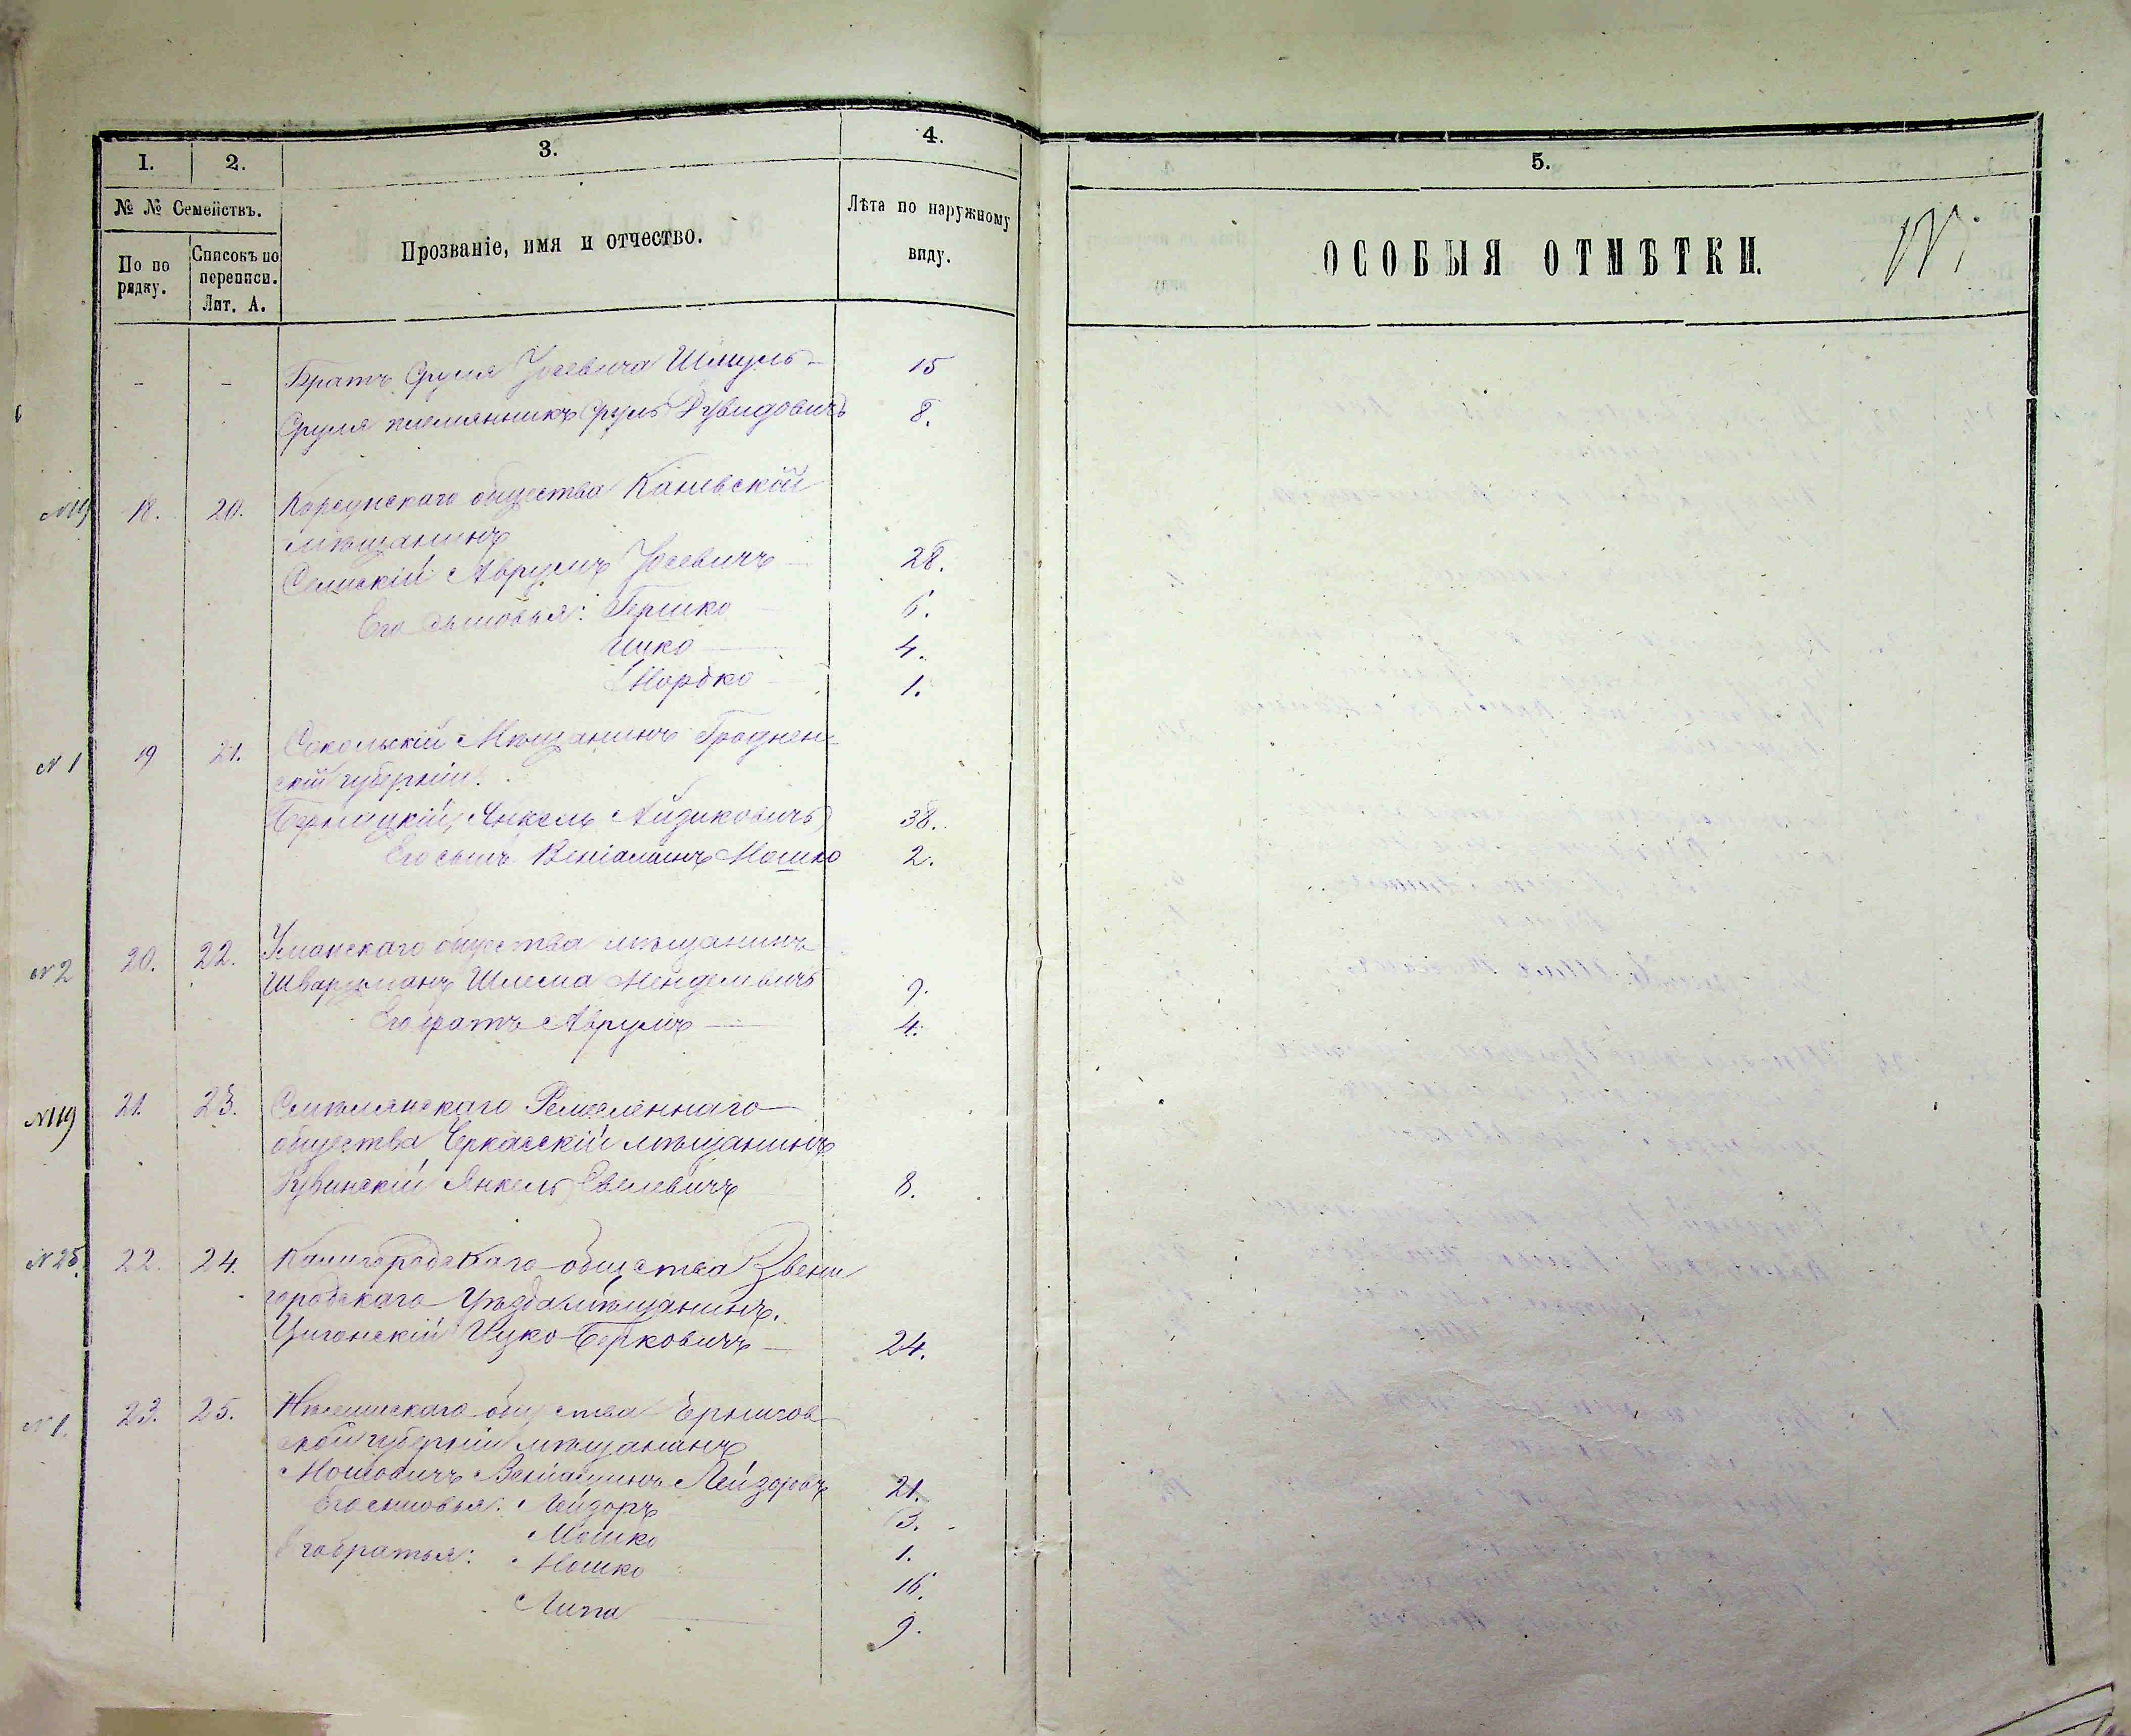 1.
2.
3.
4.
5.
№ № Семействъ.
По по
рядку.
Списокъ по
переписи.
Лит. А.
Прозваніе, имя и отчество.
Лѣта по наружному
виду.
ОСОБЫЯ ОТМѢТКИ.
- - Братъ Сруля Іосевича Шмуль - 15
Сруля племянникъ Сруль Дувидовичъ 8.
№19 18. 20. Корсунскаго общества Каневскій
мѣщанинъ
Аврумъ Іосевичъ 28.
Его сыновья: Гершко 6.
Ицко 4.
Нордко 1.
№1 19 21. Сокольскій Мѣщанинъ Гроднен-
ской губерніи.
Янкель Айзиковичъ 38.
Его сынъ Веніаминъ Мошко 2.
№2 20. 22. Уманскаго общества мѣщанинъ
Шварцманъ Шлема Менделевичъ 9.
Его братъ Аврумъ 4.
№19 21. 23. Смѣлянскаго Ремесленнаго
общества Черкасскій мѣщанинъ
Рувинскій Янкель 8.
№25. 22. 24. Калигородскаго общества Звени
городскаго уѣзда мѣщанинъ.
Цигонскій Ицко Берковичъ 24.
№1. 23. 25. Нѣжинскаго общества Чернигов
ской губерніи мѣщанинъ
Веніаминъ Лейзоровъ 21.
Его сыновья: Лейзоръ 3.
Мошко 1.
Его братья: Ношко 16.
Липа 9.